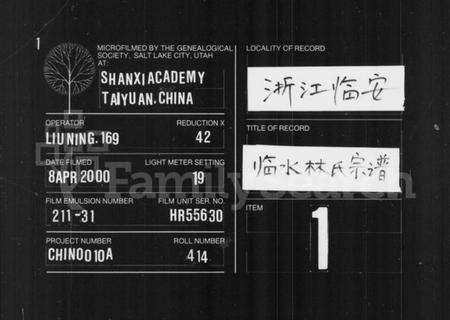 1
MICROFILMED BY THE GENEALOGICAL
SOCIETY, SALT LAKE CITY, UTAH
AT:
SHANXI ACADEMY
TAIYUAN. CHINA
OPERATOR REDUCTION X
LIUNING. 169 42
DATE FILMED LIGHT METER SETTING
8APR 2000 19
FILM EMULSION NUMBER FILM UNIT SER. NO.
211-31 HR55630
PROJECT NUMBER ROLL NUMBER
CHINO010A 414
LOCALITY OF RECORD
浙江临安
TITLE OF RECORD
临水林氏宗谱
ITEM
1
FamilySearch